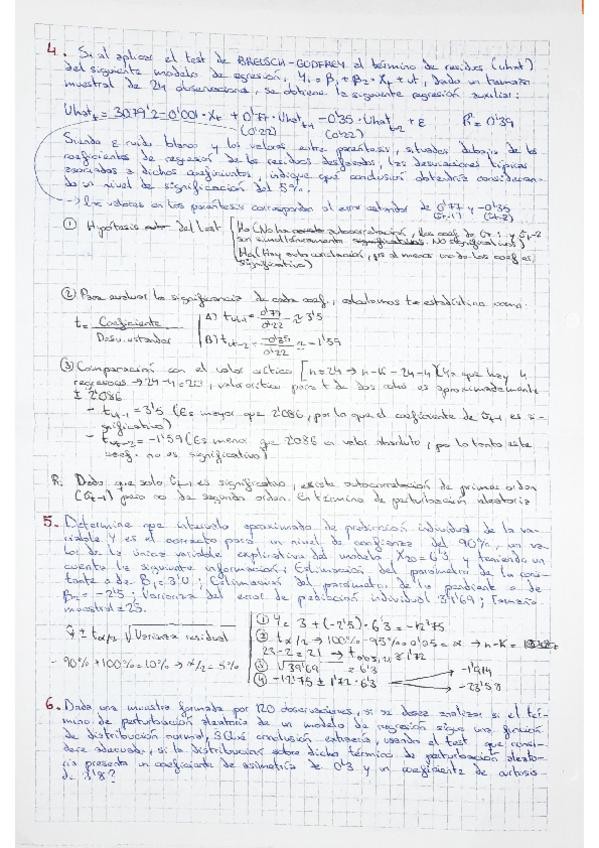 4. Si al aplicar el test de BREUSCH-GODFREY al término de residuos (uhat)
del siguiente modelo de regresión, Yi = β1 + β2·Xt + ut, dado un tamaño
muestral de 24 observaciones, se obtiene la siguiente regresión auxiliar:
Uhat t = 3079'2 - 0'001·Xt + 0'77·Uhat t-1 - 0'35·Uhat t-2 + ε R² = 0'39
(0'22) (0'22)
Siendo ε ruido blanco y los valores entre paréntesis, situados debajo de los
coeficientes de regresión de los residuos desfasados, las desviaciones típicas
asociadas a dichos coeficientes, indique que conclusión obtendría consideran-
do un nivel de significación del 5%.
-> los valores en los paréntesis corresponden al error estandar de 0'77 y -0'35
(ût-1) (ût-2)
① Hipótesis del test
H0 (No ha autocorrelación, los coef de ût-1 y ût-2
son simultáneamente No significativos)
Ha (Hay autocorrelación, al menos uno de los coef es
significativo)
② Para evaluar la significancia de cada coef., calculamos t-estadístico como:
t = Coeficiente / Desv. estandar
A) t ut-1 = 0'77 / 0'22 ≈ 3'5
B) t ut-2 = -0'35 / 0'22 ≈ -1'59
③ Comparación con el valor crítico [n=24 → n-K = 24-4 (4 que hay 4
regresores → 24-4=20), valor crítico para t de dos colas es aproximadamente
± 2'086
- t ut-1 = 3'5 (Es mayor que 2'086, por lo que el coeficiente de ût-1 es si-
gnificativo)
- t ut-2 = -1'59 (Es menor que 2'086 en valor absoluto, por lo tanto este
coef. no es significativo)
R: Dado que solo ût-1 es significativo, existe autocorrelación de primer orden
(ût-1) pero no de segundo orden. En término de perturbación aleatoria
5. Determine que intervalo aproximado de predicción individual de la va-
riable Y es el correcto para un nivel de confianza del 90%, un va-
lor de la única variable explicativa del modelo X20 = 6'3 y teniendo en
cuenta la siguiente información: Estimación del parámetro de la cons-
tante a de B1 = 3'0; Estimación del parámetro de la pendiente a de
B2 = -2'5; Varianza del error de predicción individual 39'69; Tamaño
muestral = 23.
ŷ ± tα/2 √Varianza residual
- 90% + 100% = 10% → α/2 = 5%
① Y = 3 + (-2'5)·6'3 = -12'75
② tα/2 → 100% - 95% = 0'05 = α → n-K =
23-2 = 21 → t0'05,21 ≈ 1'72
③ √39'69 = 6'3
④ -12'75 ± 1'72·6'3
-1'914
-23'58
6. Dada una muestra formada por 120 observaciones, si se desea analizar si el tér-
mino de perturbación aleatoria de un modelo de regresión sigue una función
de distribución normal, ¿Qué conclusión extraería, usando el test que consi-
dere adecuado, si la distribución sobre dicho término de perturbación aleato-
ria presenta un coeficiente de asimetría de 0'3 y un coeficiente de curtosis
de